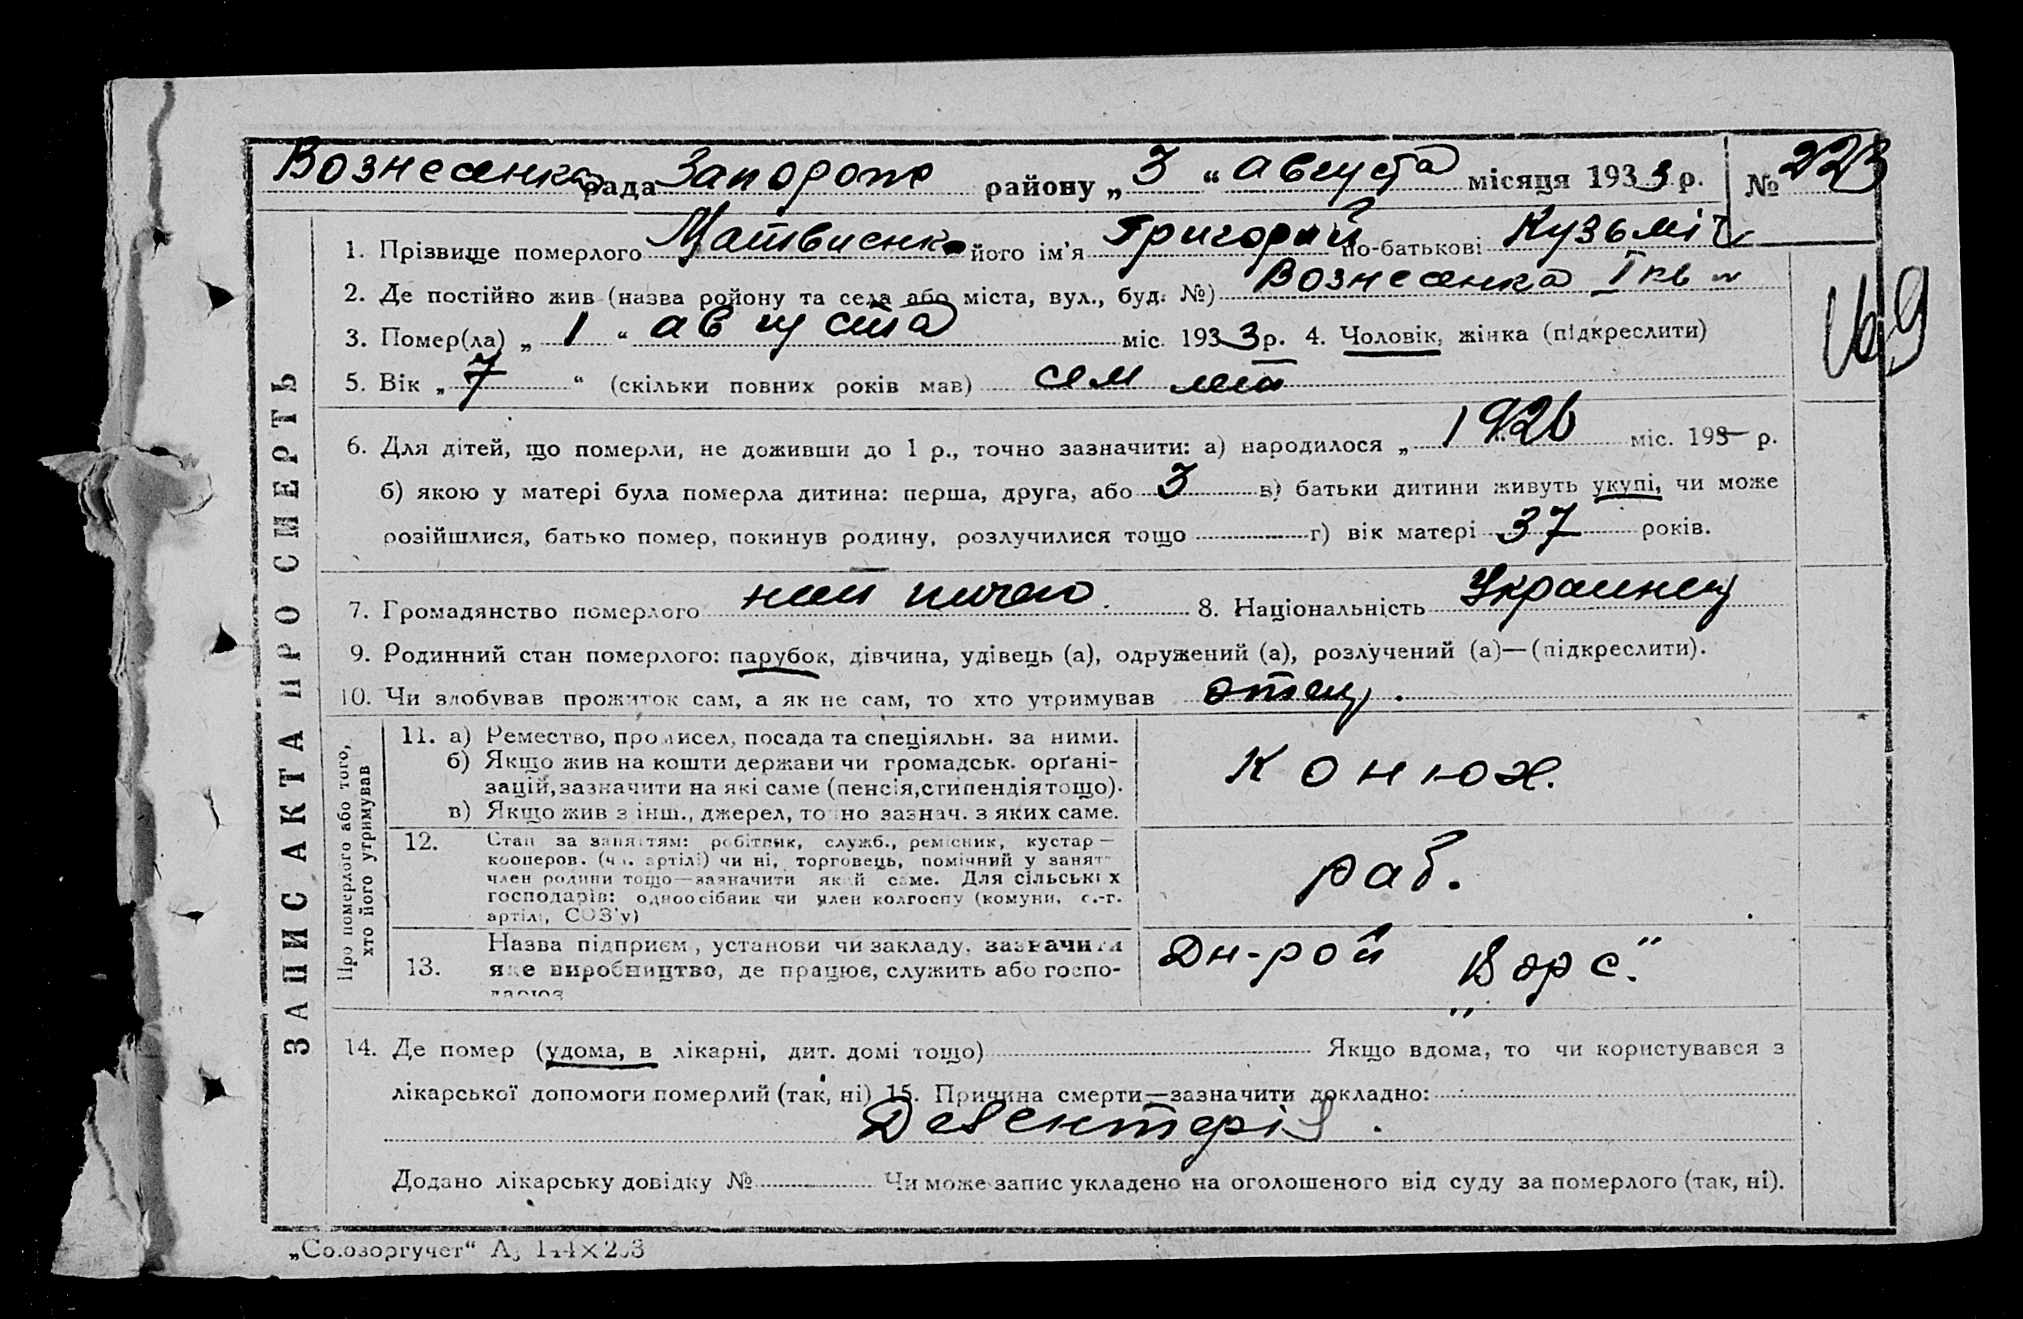 Вознесенка рада Запорож району „ 3 “ августа місяця 1933 р. № 223
169
ЗАПИС АКТА ПРО СМЕРТЬ
1. Прізвище померлого Матвиенко його ім'я Григорий по-батькові Кузьміч
2. Де постійно жив (назва ройону та села або міста, вул., буд. №) Вознесенка I кв
3. Помер(ла) „ 1 “ августа міс. 1933 р. 4. Чоловік, жінка (підкреслити)
5. Вік „ 7 “ (скільки повних років мав) сем лет
6. Для дітей, що померли, не доживши до 1 р., точно зазначити: а) народилося „ 1926 міс. 193– р.
б) якою у матері була померла дитина: перша, друга, або 3 в) батьки дитини живуть укупі, чи може
розійшлися, батько помер, покинув родину, розлучилися тощо г) вік матері 37 років.
7. Громадянство померлого 8. Національність Украинец
9. Родинний стан померлого: парубок, дівчина, удівець (а), одружений (а), розлучений (а)—(підкреслити).
10. Чи здобував прожиток сам, а як не сам, то хто утримував отец.
Про померлого або того,
хто його утримував
11. а) Ремество, промисел, посада та спеціяльн. за ними.
б) Якщо жив на кошти держави чи громадськ. орґані-
зацій, зазначити на які саме (пенсія, стипендія тощо).
в) Якщо жив з інш., джерел, точно зазнач. з яких саме.
Конюх.
12. Стан за заняттям: робітник, служб., ремісник, кустар—
кооперов. (чл. артілі) чи ні, торговець, помічний у занят
член родини тощо—зазначити який саме. Для сільських
господарів: одноосібник чи член колгоспу (комуни, с.-г.
артілі, СОЗ'у)
раб.
13. Назва підприєм, установи чи закладу, зазначити
яке виробництво, де працює, служить або госпо-
дарює
Дн-рой „Ворс“
14. Де помер (удома, в лікарні, дит. домі тощо) Якщо вдома, то чи користувався з
лікарської допомоги померлий (так, ні) 15. Причина смерти—зазначити докладно:
Дезентерія.
Додано лікарську довідку № Чи може запис укладено на оголошеного від суду за померлого (так, ні).
„Союзоргучет“